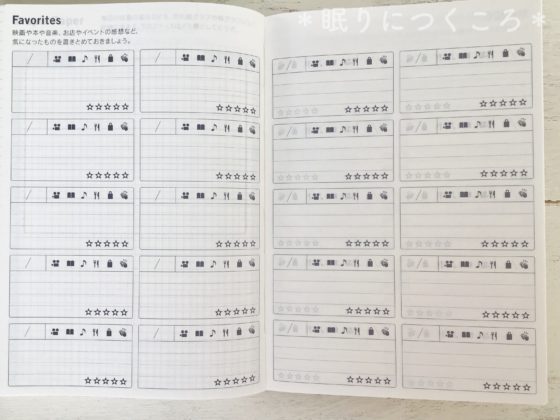 Favorites
映画や本や音楽、お店やイベントの感想など、
気になったものを書きとめておきましょう。
＊眠りにつくころ＊